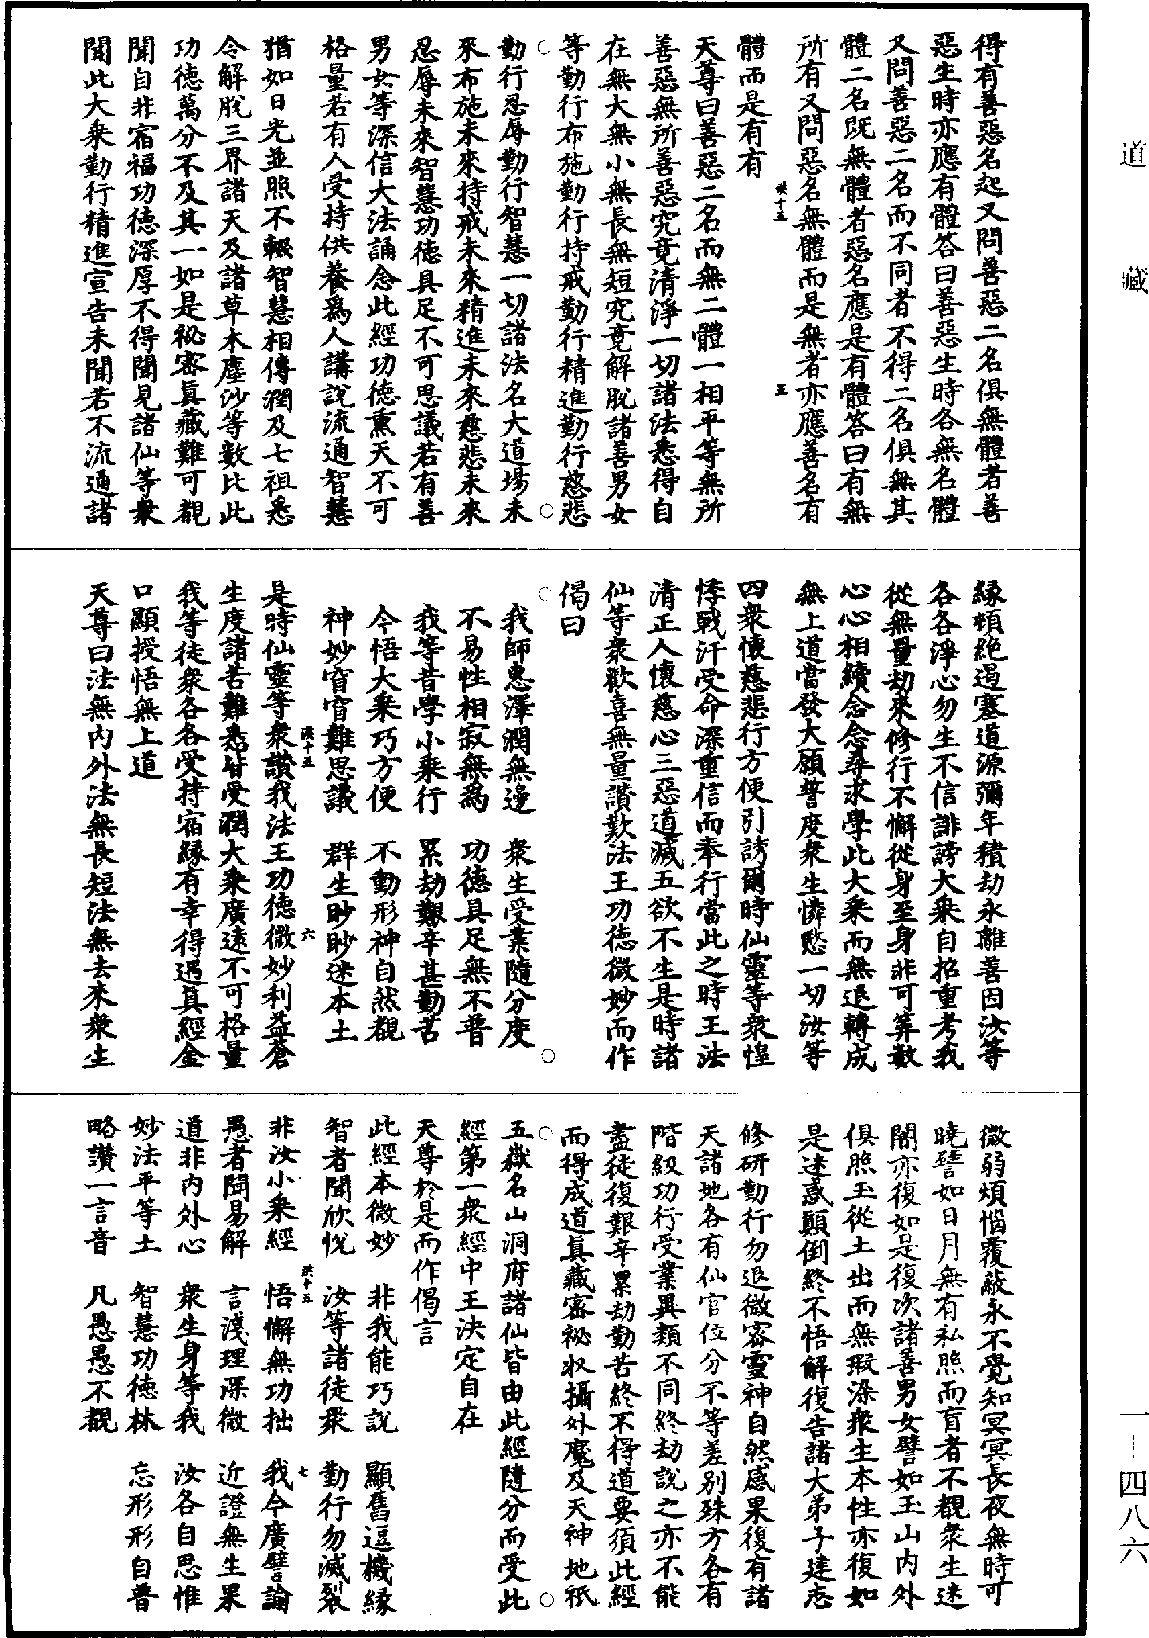 道藏
得有善惡名起又問善惡二名俱無體者善
惡生時亦應有體答曰善惡生時各無名體
又問善惡二名而不同者不得二名俱無其
體二名既無體者惡名應是有體答曰有無
所有又問惡名無體而是無者亦應善名有
體而是有有
天尊曰善惡二名而無二體一相平等無所
善惡無所善惡究竟清淨一切諸法悉得自
在無大無小無長無短究竟解脫諸善男女
等勤行布施勤行持戒勤行精進勤行慈悲
勤行忍辱勤行智慧一切諸法名大道場未
來布施未來持戒未來精進未來慈悲未來
忍辱未來智慧功德具足不可思議若有善
男女等深信大法誦念此經功德熏天不可
格量若有人受持供養為人講說流通智慧
猶如日光並照不輟智慧相傳潤及七祖悉
令解脫三界諸天及諸草木塵沙等數比此
功德萬分不及其一如是祕密真藏難可覩
聞自非宿福功德深厚不得聞見諸仙等衆
聞此大衆勤行精進宣告未聞若不流通諸
緣頓絕遏塞道源彌年積劫永離善因汝等
各各淨心勿生不信誹謗大乘自招重考我
從無量劫來修行不懈從身至身非可筭數
心心相續念念尋求學此大乘而無退轉成
無上道當發大願誓度衆生憐愍一切汝等
四衆懷慈悲行方便引誘爾時仙靈等衆惶
悸戰汗受命深重信而奉行當此之時王法
清正人懷慈心三惡道滅五欲不生是時諸
仙等衆歡喜無量讚歎法王功德微妙而作
偈曰
我師惠澤潤無邊 衆生受業隨分度
不易性相寂無為 功德具足無不普
我等昔學小乘行 累劫艱辛甚勤苦
今悟大乘巧方便 不動形神自然覩
神妙窅窅難思議 群生眇眇迷本土
是時仙靈等衆讚我法王功德微妙利益蒼
生度諸苦難悉皆受潤大乘廣遠不可格量
我等徒衆各各受持宿緣有幸得遇真經金
口顯授悟無上道
天尊曰法無內外法無長短法無去來衆生
微弱煩惱覆蔽永不覺知冥冥長夜無時可
曉譬如日月無有私照而盲者不覩衆生迷
闇亦復如是復次諸善男女譬如玉山內外
俱照玉從土出而無瑕染衆生本性亦復如
是迷惑顛倒終不悟解復告諸大弟子建志
修研勤行勿退微密靈神自然感果復有諸
天諸地各有仙官位分不等差別殊方各有
階級功行受業異類不同終劫說之亦不能
盡徒復艱辛累劫勤苦終不得道要須此經
而得成道真藏密祕收攝外魔及天神地祇
五嶽名山洞府諸仙皆由此經隨分而受此
經第一衆經中王決定自在
天尊於是而作偈言
此經本微妙 非我能巧說 顯舊逗機緣
智者聞欣悅 汝等諸徒衆 勤行勿滅裂
非汝小乘經 悟懈無功拙 我今廣譬論
愚者聞易解 言淺理深微 近證無生果
道非內外心 衆生身等我 汝各自思惟
妙法平等土 智慧功德林 忘形形自普
略讚一言音 凡愚愚不覩
一—四八六